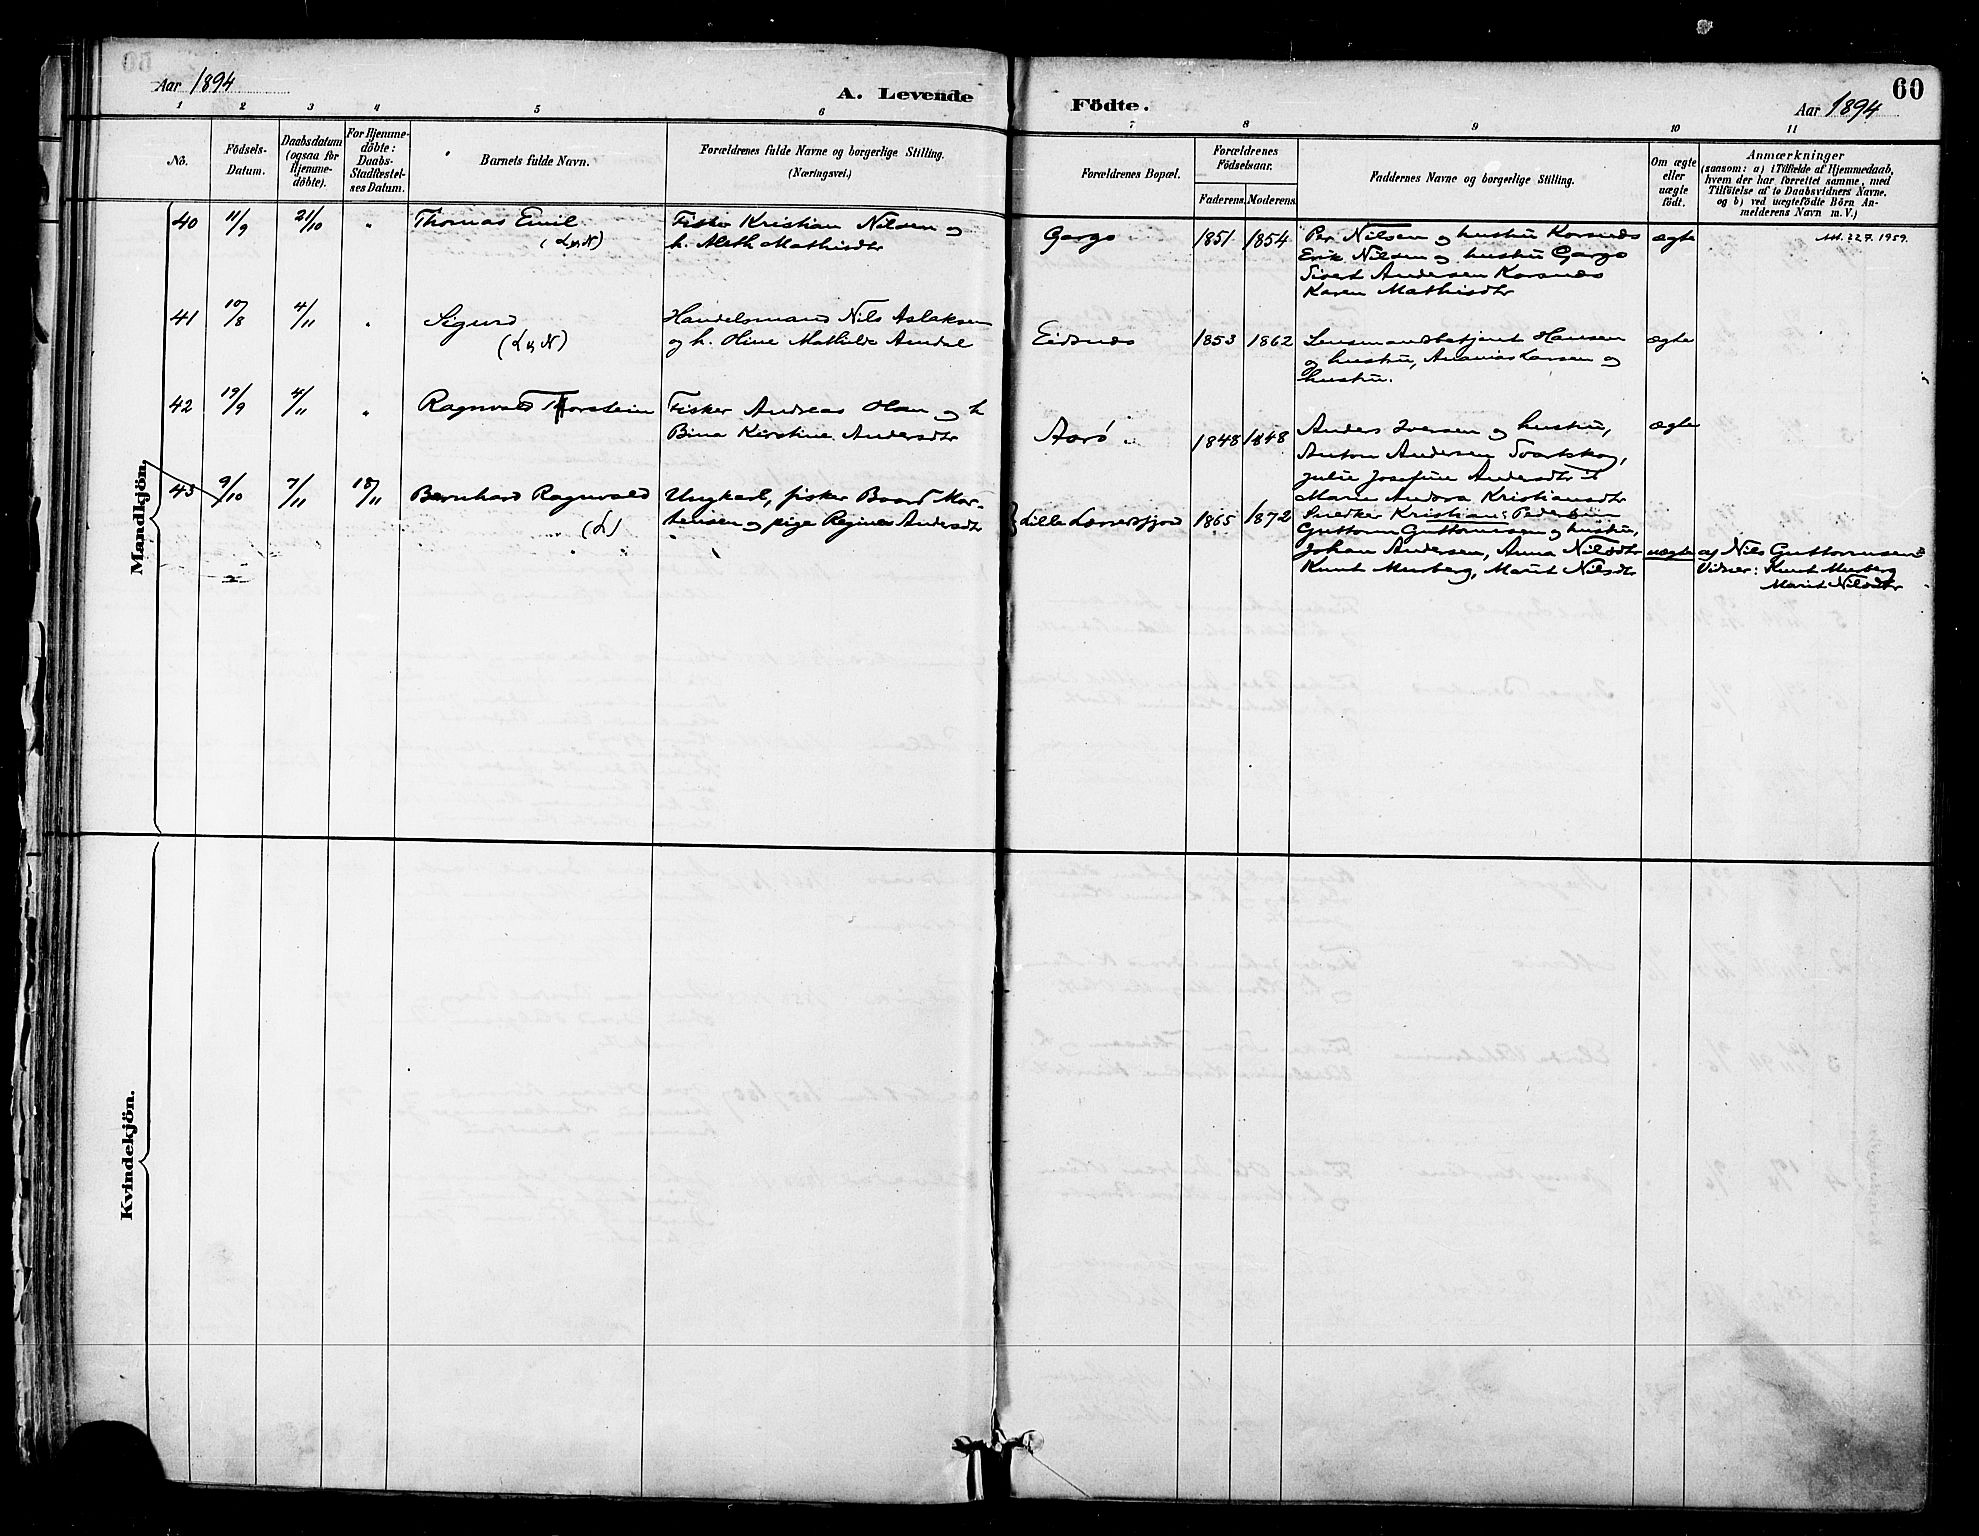 60
Aar 1894
A. Levende
Födte.
Aar 1894
1 2 3 4 5 6 7 8 9 10 11
No.
Födsels-
Datum.
Daabsdatum
(ogsaa for
Hjemme-
döbte).
For Hjemme-
döbte:
Daabs-
Stadfæstel-
ses Datum.
Barnets fulde Navn.
Forældrenes fulde Navne og borgerlige Stilling.
(Næringsvei.)
Forældrenes Bopæl.
Forældrenes
Födselsaar.
Faderens. Moderens.
Faddernes Navne og borgerlige Stilling.
Om ægte
eller
uægte
födt.
Anmærkninger
(saasom: a) i Tilfælde af Hjemmedaab,
hvem der har forrettet samme, med
Tilföielse af to Daabsvidners Navne.
og b) ved uægtefödte Börn An-
melderens Navn m. V.)
Mandkjön.
40 11/9 21/10 " Thomas Emil
(L og N)
Fisker Kristian Nilsen og
h. Aleth Mathisdtr
Gargo 1851 1854
Per Nilsen og hustru Korsnes
Erik Nilsen og hustru Gargo
Sivert Andersen Korsnes
Karen Mathisdtr
ægte
Att. 22.7.1959.
41 10/8 4/11 " Sigurd
(L og N)
Handelsmand Nils Aslaksen
og h. Oline Mathilde Amdal
Eidsnes 1853 1862
Lensmandsbetjent Hansen
og hustru, Ananias Larsen og
hustru.
ægte
42 19/9 4/11 " Ragnvald Thorstein
Fisker Andreas Olsen og h
Bina Kirstine Andersdtr
Aarö 1848 1848
Anders Iversen og hustru,
Anton Andersen Svartskog,
Julie Josefine Andersdtr
Marie Andrea Kristiansdtr
ægte
43 9/10 7/11 18/11 Bernhard Ragnvald
(L)
Ungkarl, fisker Baard Mor-
tensen og pige Regine Andersdtr
Lille Lerresfjord 1865 1872
Snedker Kristian Pedersen
Guttorm Guttormsen og hustru,
Johan Andersen, Anna Nilsdtr
Knut Murberg, Marit Nilsdtr
uægte
af Nils Guttormsen
Vidner: Knut Murberg
Marit Nilsdtr
Kvindekjön.